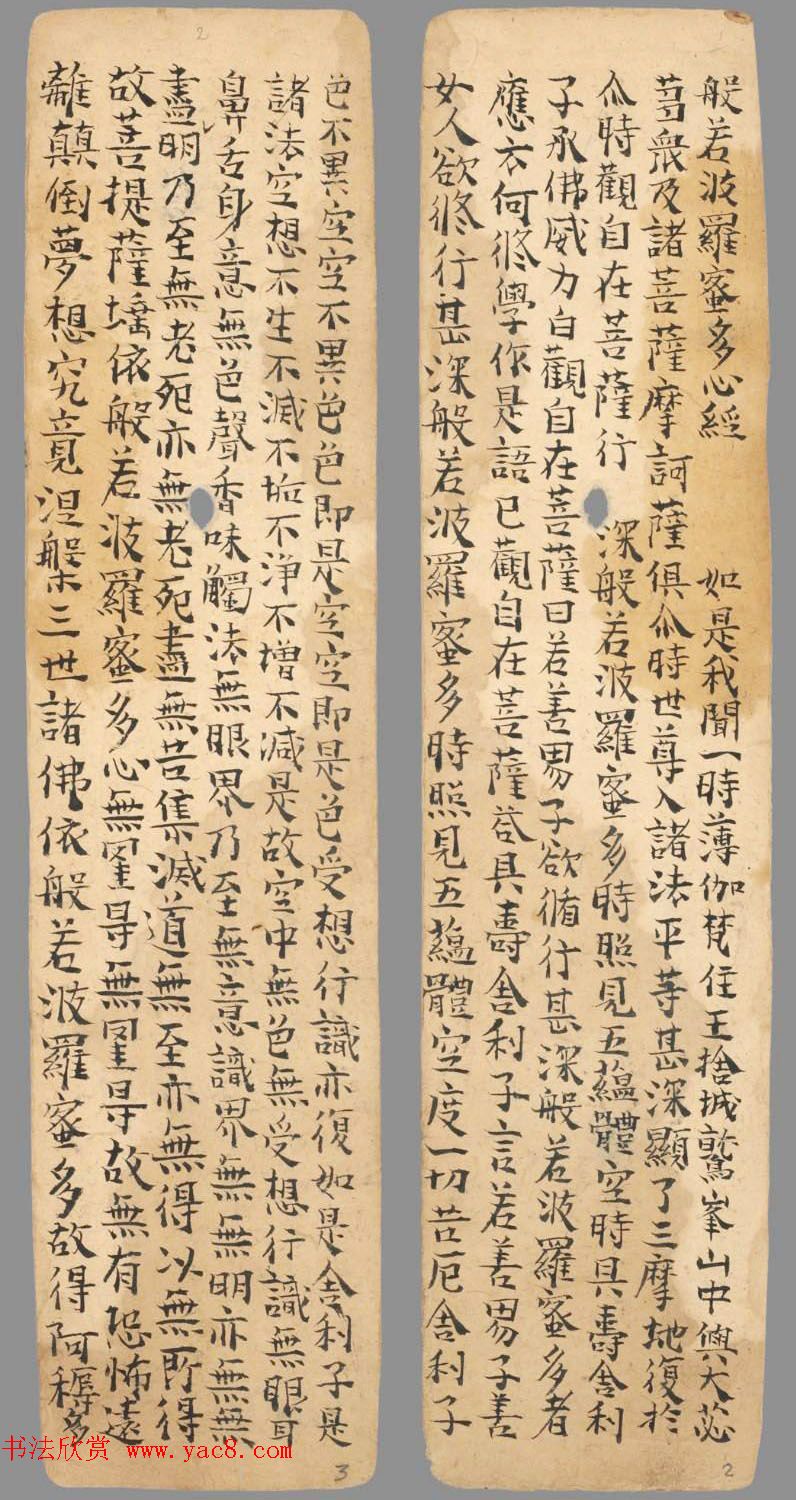 般若波羅蜜多心經 如是我聞一時薄伽梵住王捨城鷲峯山中與大苾
蒭衆及諸菩薩摩訶薩俱尒時世尊入諸法平等甚深顯了三摩地復於
尒時觀自在菩薩行深般若波羅蜜多時照見五蘊體空時具壽舍利
子承佛威力白觀自在菩薩曰若善男子欲脩行甚深般若波羅蜜多者
應衣何修學作是語已觀自在菩薩荅具壽舍利子言若善男子善
女人欲修行甚深般若波羅蜜多時照見五蘊體空度一切苦厄舍利子
2
色不異空空不異色色即是空空即是色受想行識亦復如是舍利子是
諸法空想不生不滅不垢不淨不增不減是故空中無色無受想行識無眼耳
鼻舌身意無色聲香味觸法無眼界乃至無意識界無無明亦無無
盡明乃至無老死亦無老死盡無苦集滅道無至亦無得以無所得
故菩提薩埵依般若波羅蜜多心無罣导無罣导故無有恐怖遠
離顛倒夢想究竟涅槃三世諸佛依般若波羅蜜多故得阿耨多
2
3
书法欣赏 www.yac8.com